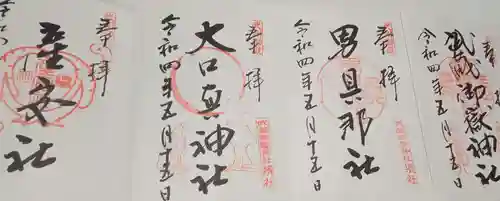 奉拝
武蔵御嶽神社
令和四年五月十五日
奉拝
男具那社
令和四年五月十五日
奉拝
大口真神社
令和四年五月十五日
奉拝
産安社